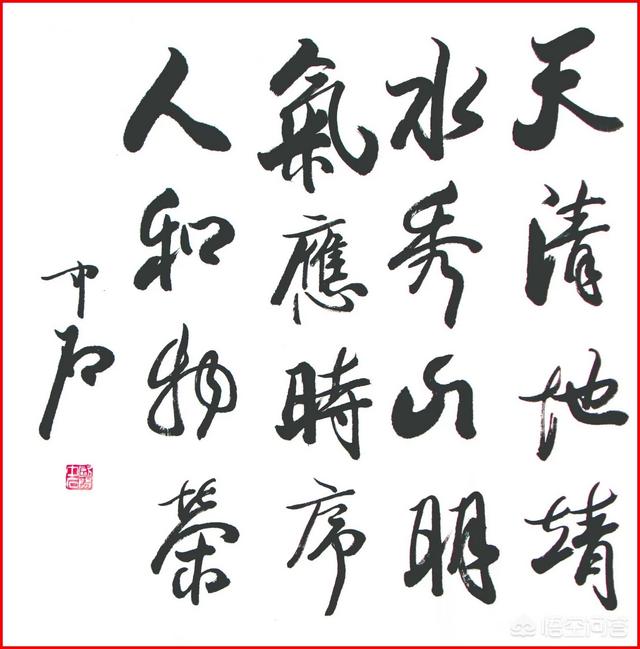 天清地靖
水秀山明
氣應時序
人和物榮
中石
悟空问答